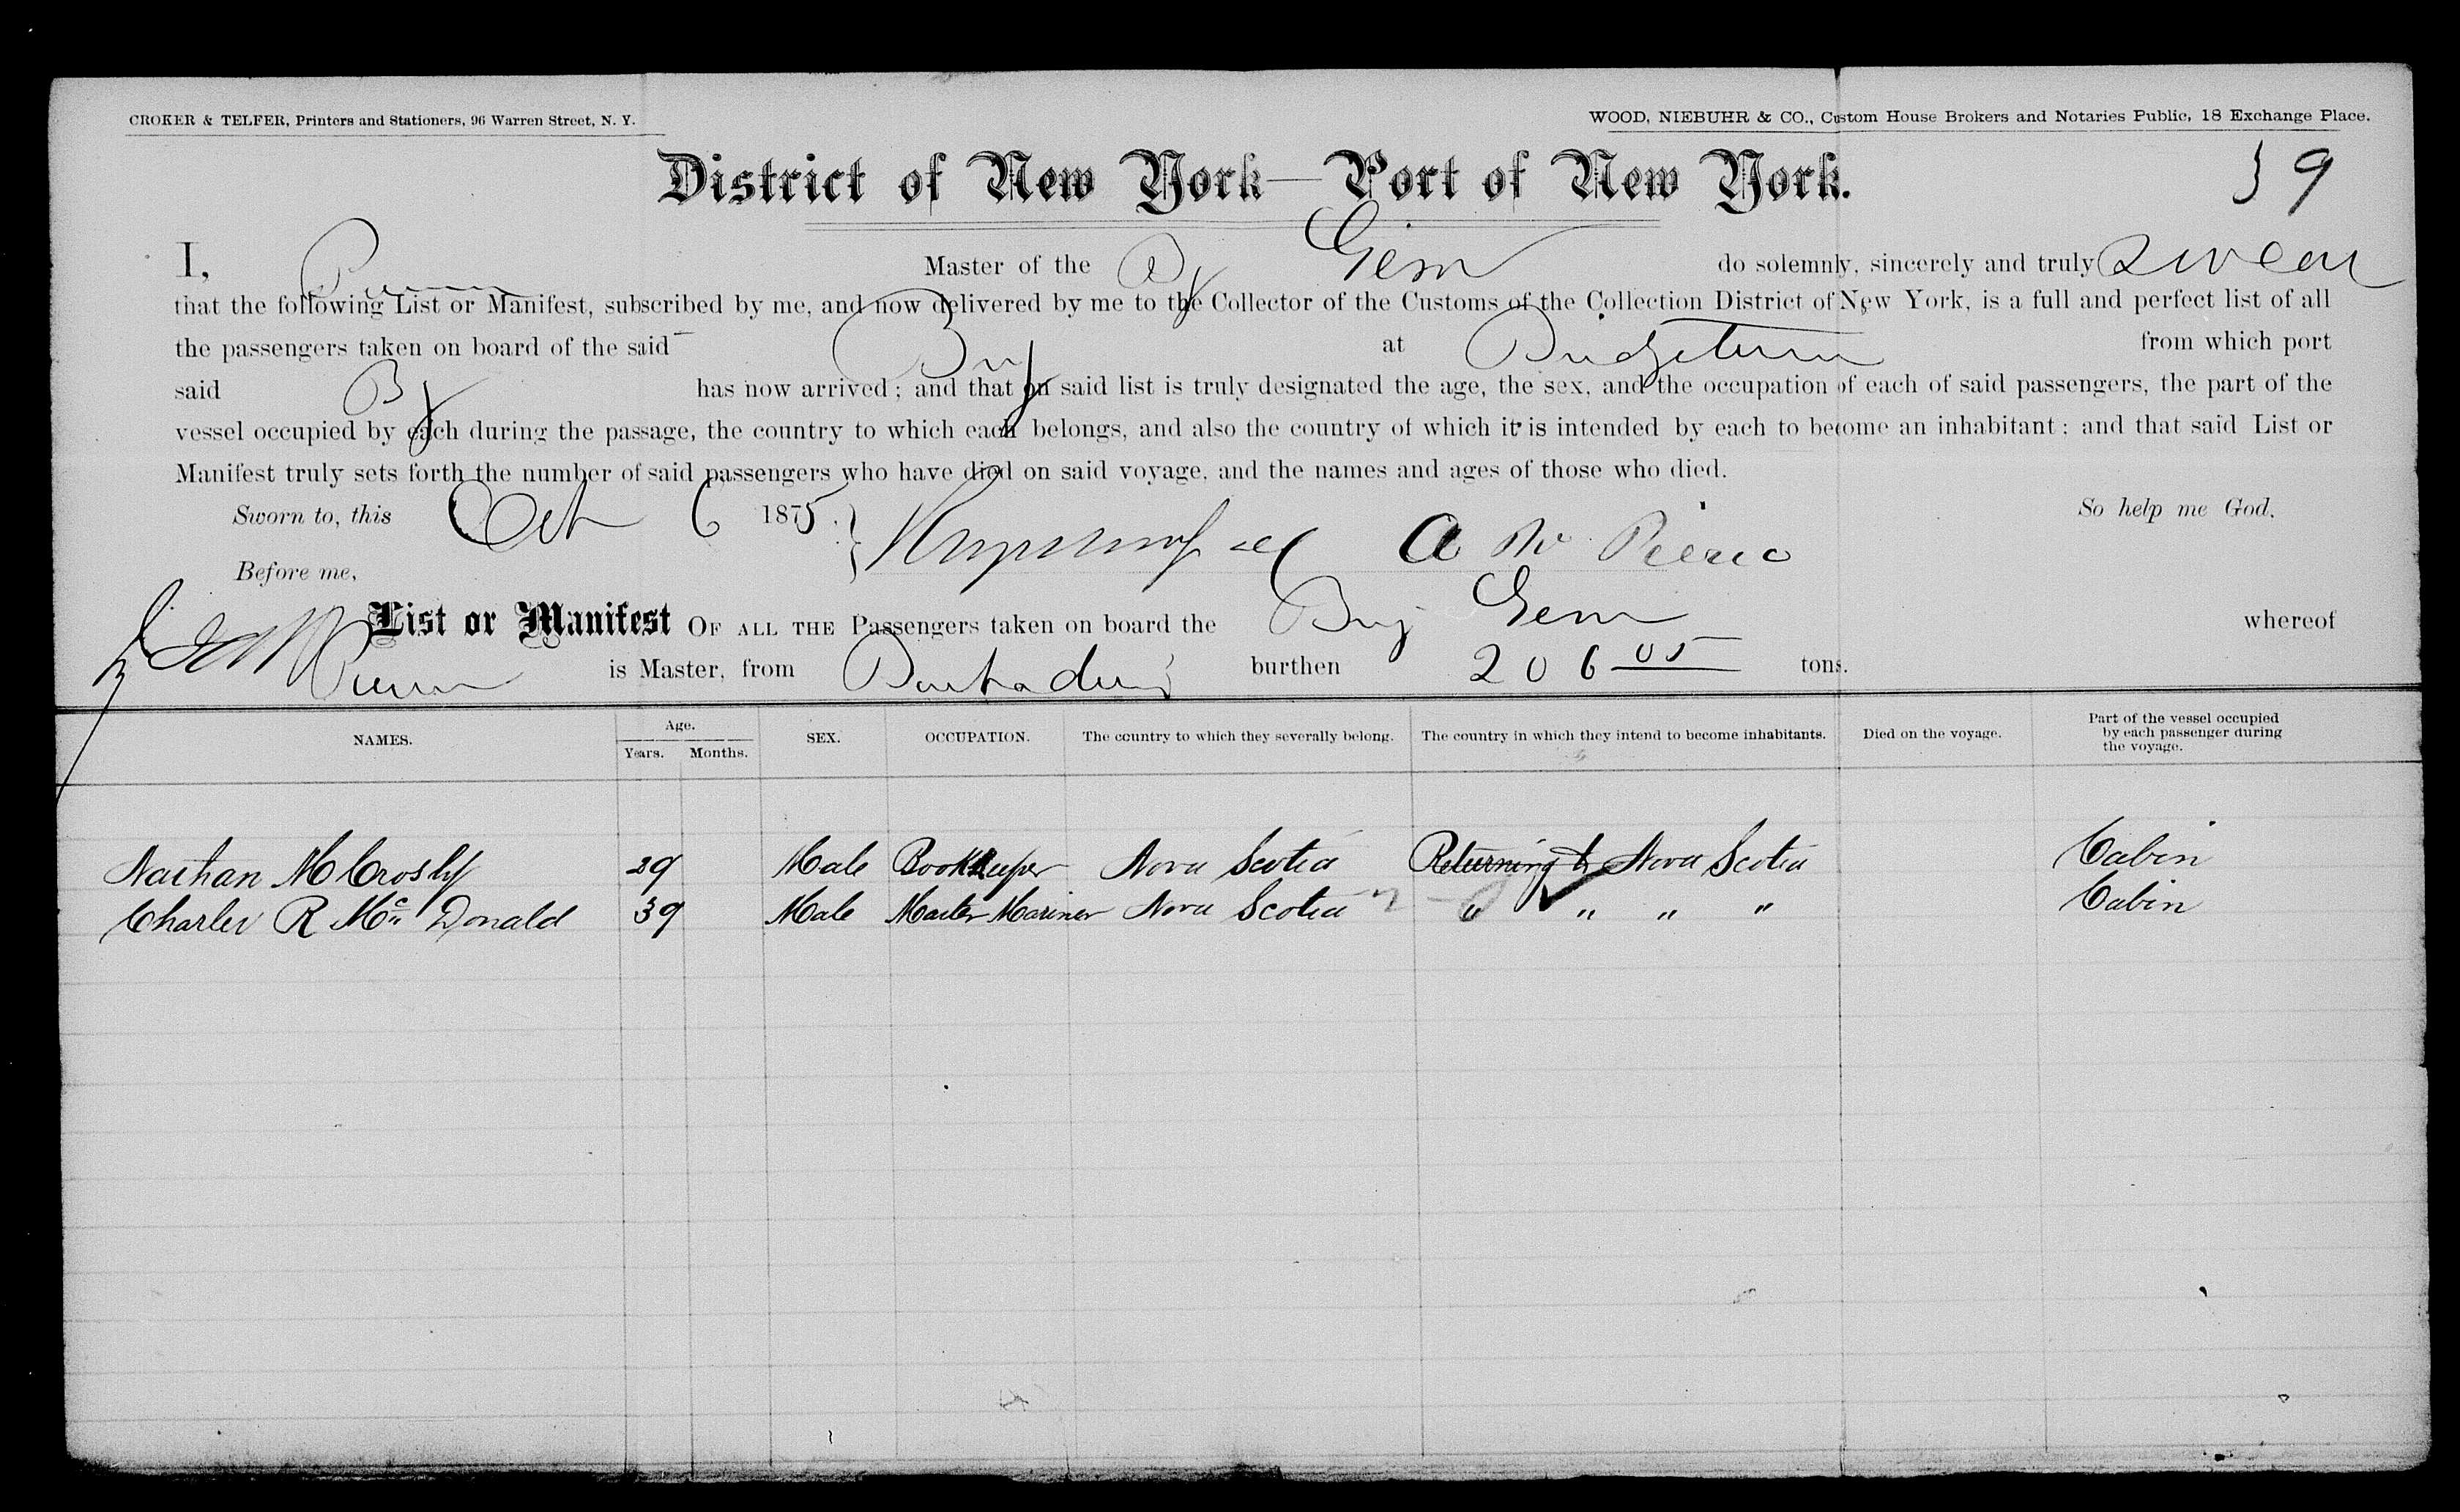 CROKER & TELFER, Printers and Stationers, 96 Warren Street, N. Y.
WOOD, NIEBUHR & CO., Custom House Brokers and Notaries Public, 18 Exchange Place.
District of New York—Port of New York.
39
I, Master of the Gem do solemnly, sincerely and truly swear
that the following List or Manifest, subscribed by me, and now delivered by me to the Collector of the Customs of the Collection District of New York, is a full and perfect list of all
the passengers taken on board of the said Brig at Bridgetown from which port
said Bg has now arrived; and that on said list is truly designated the age, the sex, and the occupation of each of said passengers, the part of the
vessel occupied by each during the passage, the country to which each belongs, and also the country of which it is intended by each to become an inhabitant; and that said List or
Manifest truly sets forth the number of said passengers who have died on said voyage, and the names and ages of those who died.
Sworn to, this Oct 6 1875. So help me God.
Before me,
List or Manifest OF ALL THE Passengers taken on board the Brig Gem whereof
is Master, from Barbados burthen 206 05 tons.
NAMES. Age. Years. Months. SEX. OCCUPATION. The country to which they severally belong. The country in which they intend to become inhabitants. Died on the voyage. Part of the vessel occupied by each passenger during the voyage.
Nathan M Crosby 29 Male Bookkeeper Nova Scotia Returning to Nova Scotia Cabin
Charles R Mc Donald 39 Male Master Mariner Nova Scotia " " " " Cabin